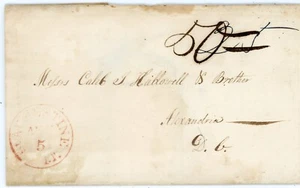 50
Messrs Caleb S Hallowell & Brother
Alexandria
D. C.
5